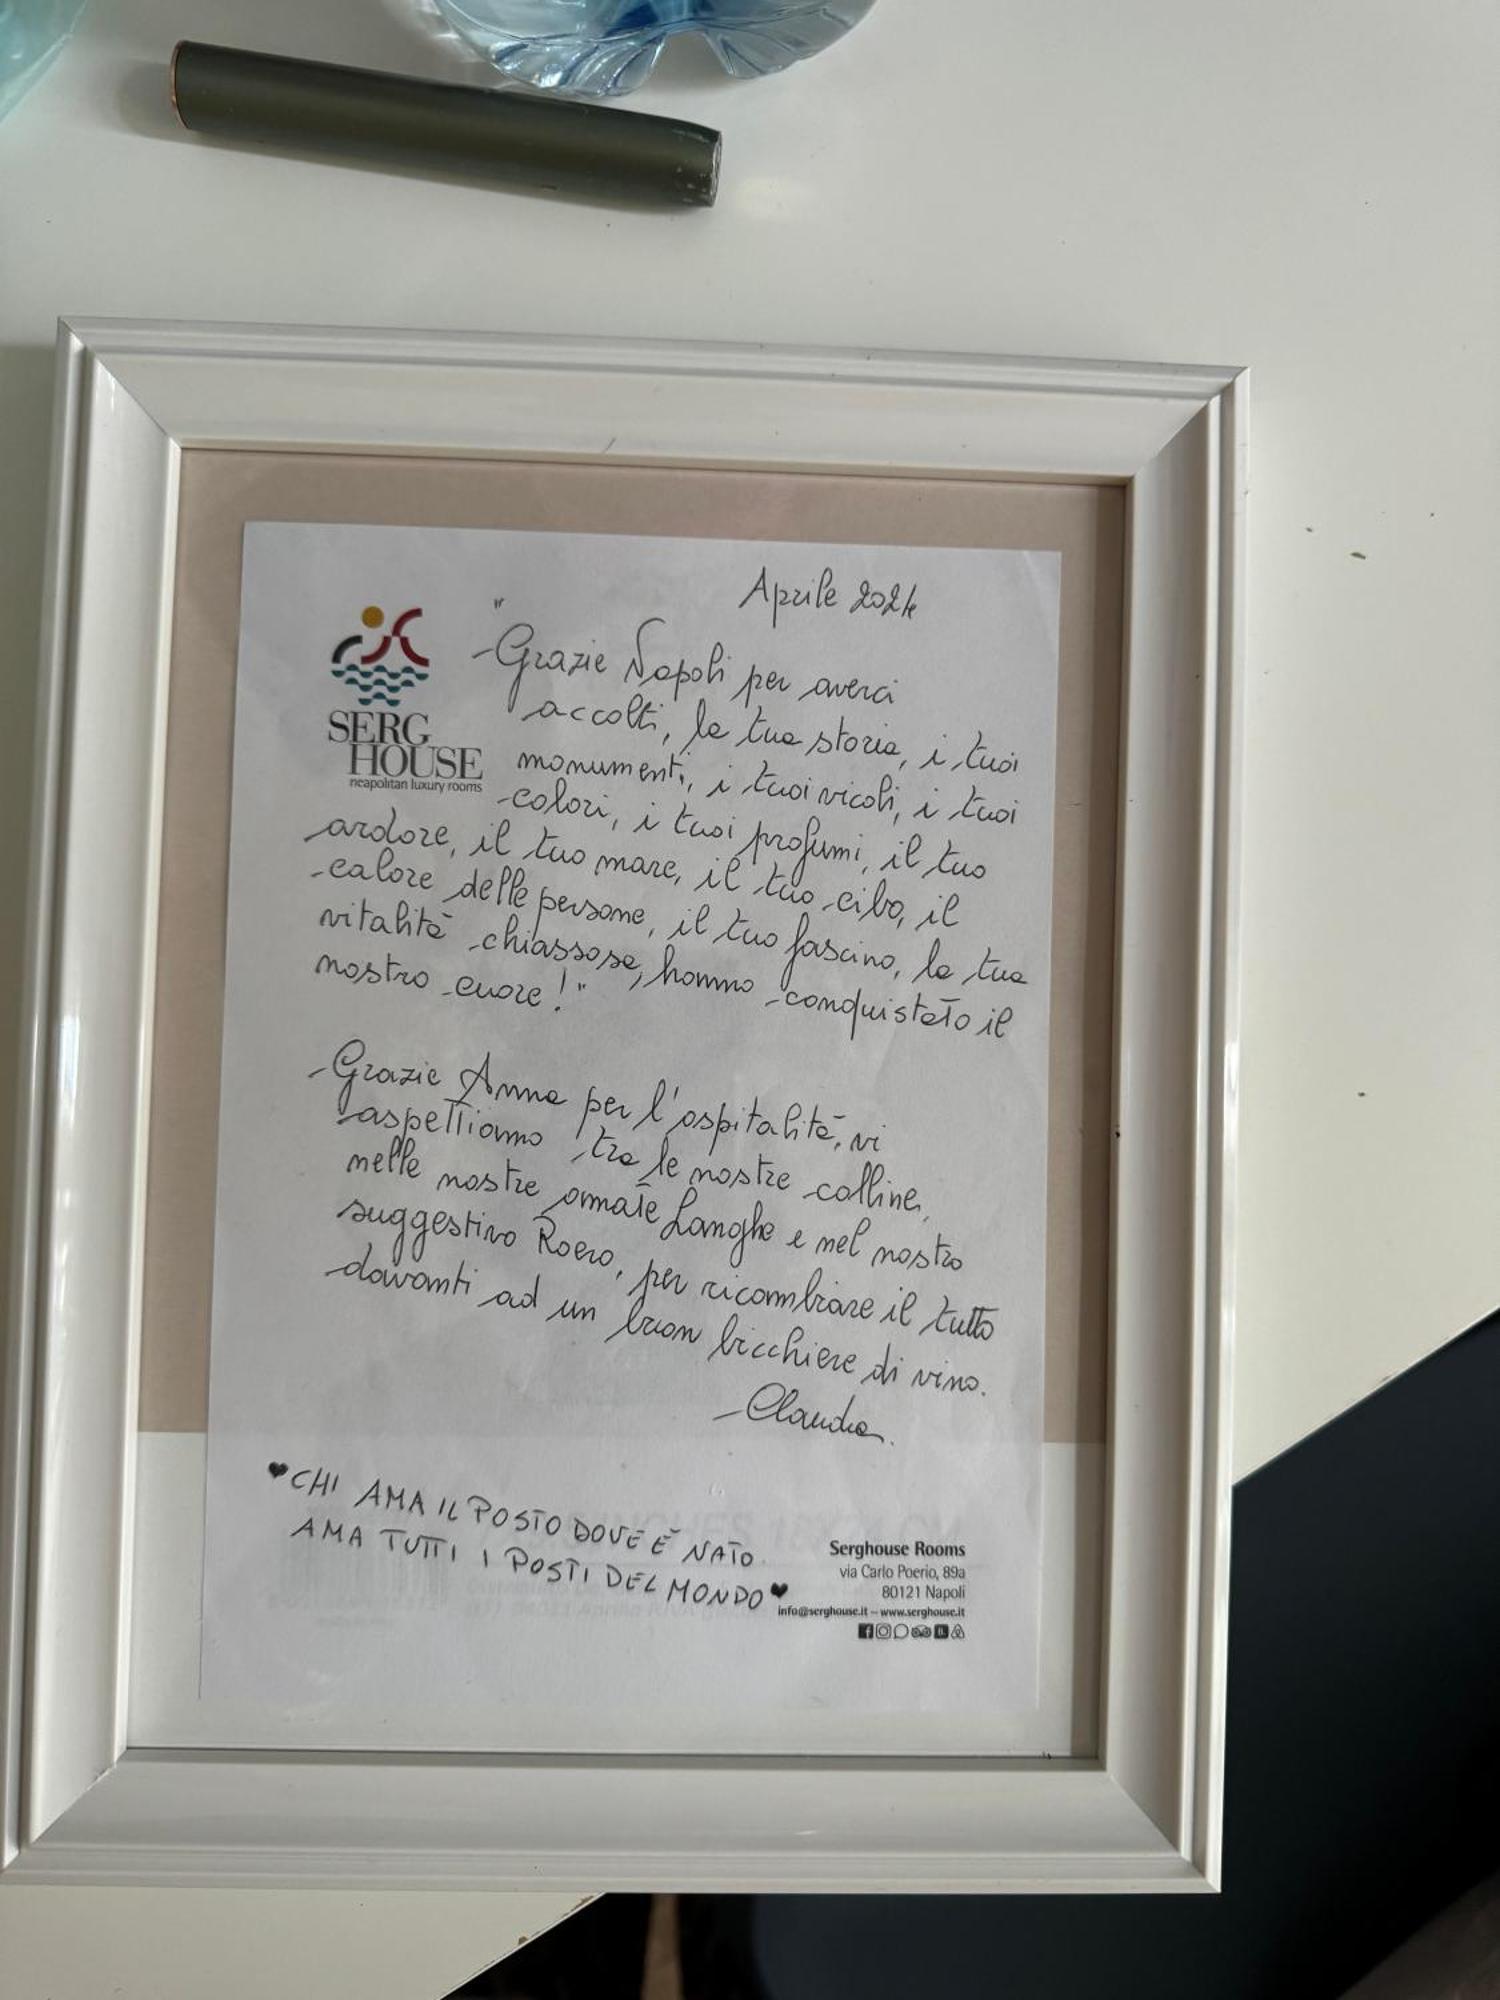 Aprile 2024
"Grazie Napoli per averci
accolti, la tua storia, i tuoi
monumenti, i tuoi vicoli, i tuoi
colori, i tuoi profumi, il tuo
ardore, il tuo mare, il tuo cibo, il
calore delle persone, il tuo fascino, la tua
vitalità chiassosa, hanno conquistato il
nostro cuore!"
SERG
HOUSE
neapolitan luxury rooms
Grazie Anna per l'ospitalità, vi
aspettiamo tra le nostre colline,
nelle nostre amate Langhe e nel nostro
suggestivo Roero, per ricambiare il tutto
davanti ad un buon bicchiere di vino.
Claudia.
♥CHI AMA IL POSTO DOVE È NATO
AMA TUTTI I POSTI DEL MONDO♥
Serghouse Rooms
via Carlo Poerio, 89a
80121 Napoli
info@serghouse.it – www.serghouse.it